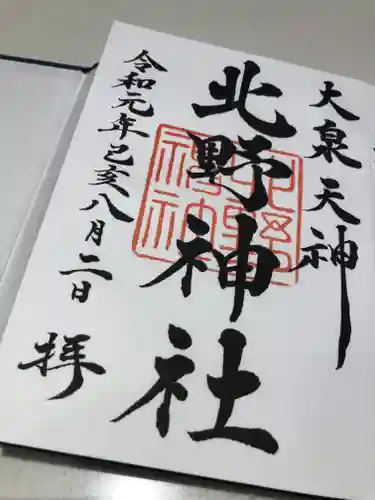 大泉天神
北野神社
北野
神社
令和元年己亥八月二日
拝